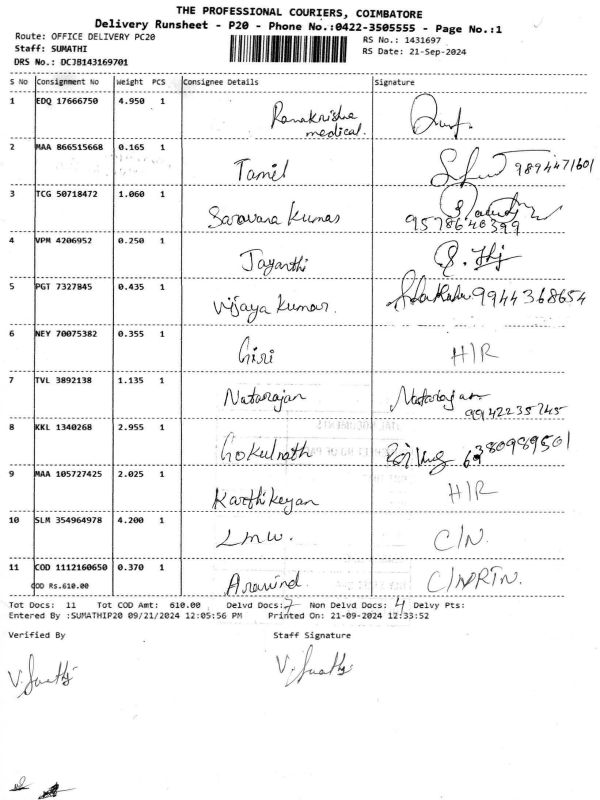 THE PROFESSIONAL COURIERS, COIMBATORE
Delivery Runsheet - P20 - Phone No.:0422-3505555 - Page No.:1
Route: OFFICE DELIVERY PC20
RS No.: 1431697
Staff: SUMATHI
RS Date: 21-Sep-2024
DRS No.: DCJB143169701
S No Consignment No Weight PCS Consignee Details Signature
1 EDQ 17666750 4.950 1 Ramakrishna medical.
2 MAA 866515668 0.165 1 Tamil 9894471601
3 TCG 50718472 1.060 1 Saravana Kumar 9578640399
4 VPM 4206952 0.250 1 Jayanthi
5 PGT 7327845 0.435 1 Vijaya Kumar. 9944368654
6 NEY 70075382 0.355 1 Giri H/R
7 TVL 3892138 1.135 1 Natarajan Natarajan 9942235745
8 KKL 1340268 2.955 1 Gokulnath 6380989501
9 MAA 105727425 2.025 1 Karthikeyan H/R
10 SLM 354964978 4.200 1 LMW. C/N.
11 COD 1112160650 0.370 1 Aravind
COD Rs.610.00
Tot Docs: 11 Tot COD Amt: 610.00 Delvd Docs: 7 Non Delvd Docs: 4 Delvy Pts:
Entered By :SUMATHIP20 09/21/2024 12:05:56 PM Printed On: 21-09-2024 12:33:52
Verified By Staff Signature